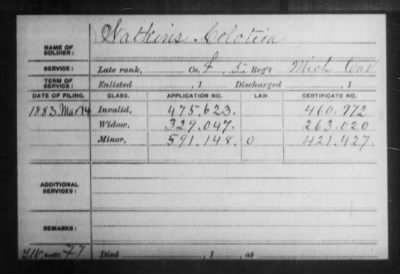 NAME OF SOLDIER: Watkins, Colotien
SERVICE: Late rank, Co. F, 5 Reg't Mich Cav
TERM OF SERVICE: Enlisted , 1 Discharged , 1
DATE OF FILING. CLASS. APPLICATION NO. LAW CERTIFICATE NO.
1883 Mar 14 Invalid, 475.623. 460.972
Widow, 329.047. 263.020
Minor, 591.148. 0 421.427.
ADDITIONAL SERVICES:
REMARKS:
Died , 1 , at